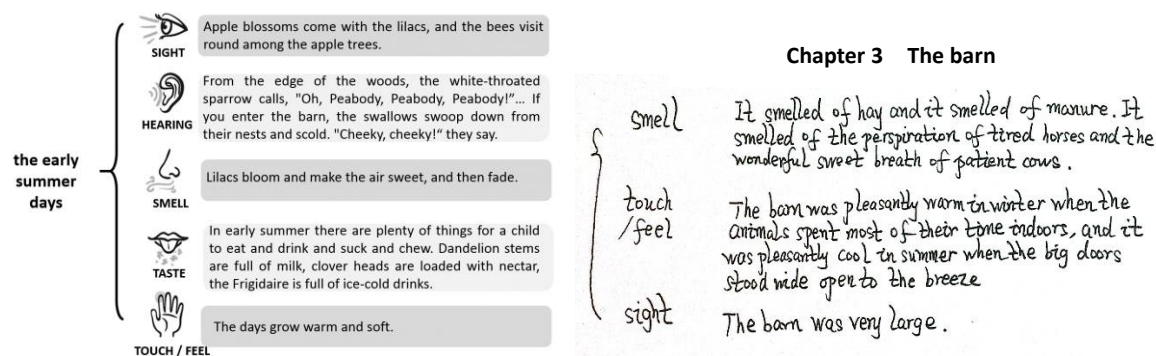 the early
summer
days
SIGHT
Apple blossoms come with the lilacs, and the bees visit
round among the apple trees.
HEARING
From the edge of the woods, the white-throated
sparrow calls, "Oh, Peabody, Peabody, Peabody!”... If
you enter the barn, the swallows swoop down from
their nests and scold. "Cheeky, cheeky!“ they say.
SMELL
Lilacs bloom and make the air sweet, and then fade.
TASTE
In early summer there are plenty of things for a child
to eat and drink and suck and chew. Dandelion stems
are full of milk, clover heads are loaded with nectar,
the Frigidaire is full of ice-cold drinks.
TOUCH / FEEL
The days grow warm and soft.
Chapter 3 The barn
smell
It smelled of hay and it smelled of manure. It
smelled of the perspiration of tired horses and the
wonderful sweet breath of patient cows.
touch
/feel
The barn was pleasantly warm in winter when the
animals spent most of their time indoors, and it
was pleasantly cool in summer when the big doors
stood wide open to the breeze
sight
The barn was very large.